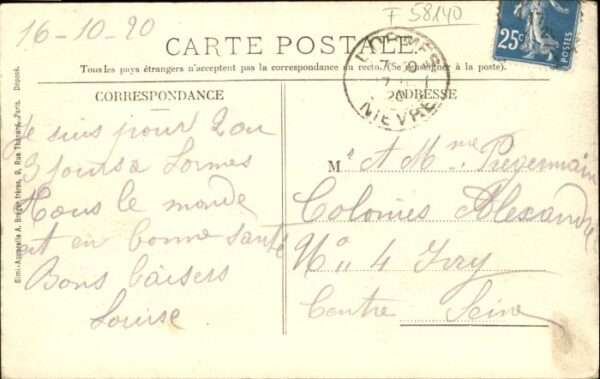 16-10-20
F 58140
CARTE POSTALE
Tous les pays étrangers n'acceptent pas la correspondance au recto. (Se renseigner à la poste).
25c
POSTES
LORMES
NIEVRE
CORRESPONDANCE
ADRESSE
Je suis pour 2 ou
3 jours a Lormes
tous le monde
est en bonne santé
Bons baisers
Louise
M A Mme Pregermain
Colonies Alexandre
No 4 Ivry
Centre Seine
Déposé.